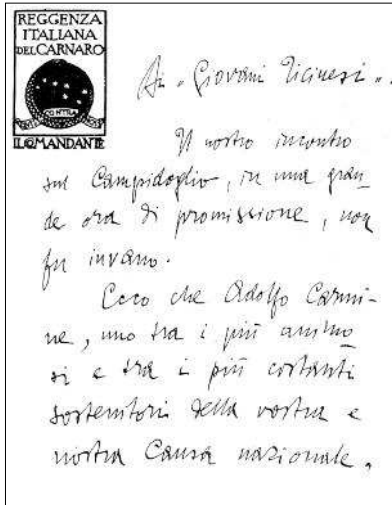 REGGENZA
ITALIANA
DEL CARNARO
CONTRA
IL COMANDANTE
Ai "Giovani Ticinesi".
Il nostro incontro
sul Campidoglio, in una gran-
de ora di promissione, non
fu invano.
Ecco che Adolfo Carmi-
ne, uno tra i più animo
si e tra i più costanti
sostenitori della vostra e
nostra Causa nazionale,